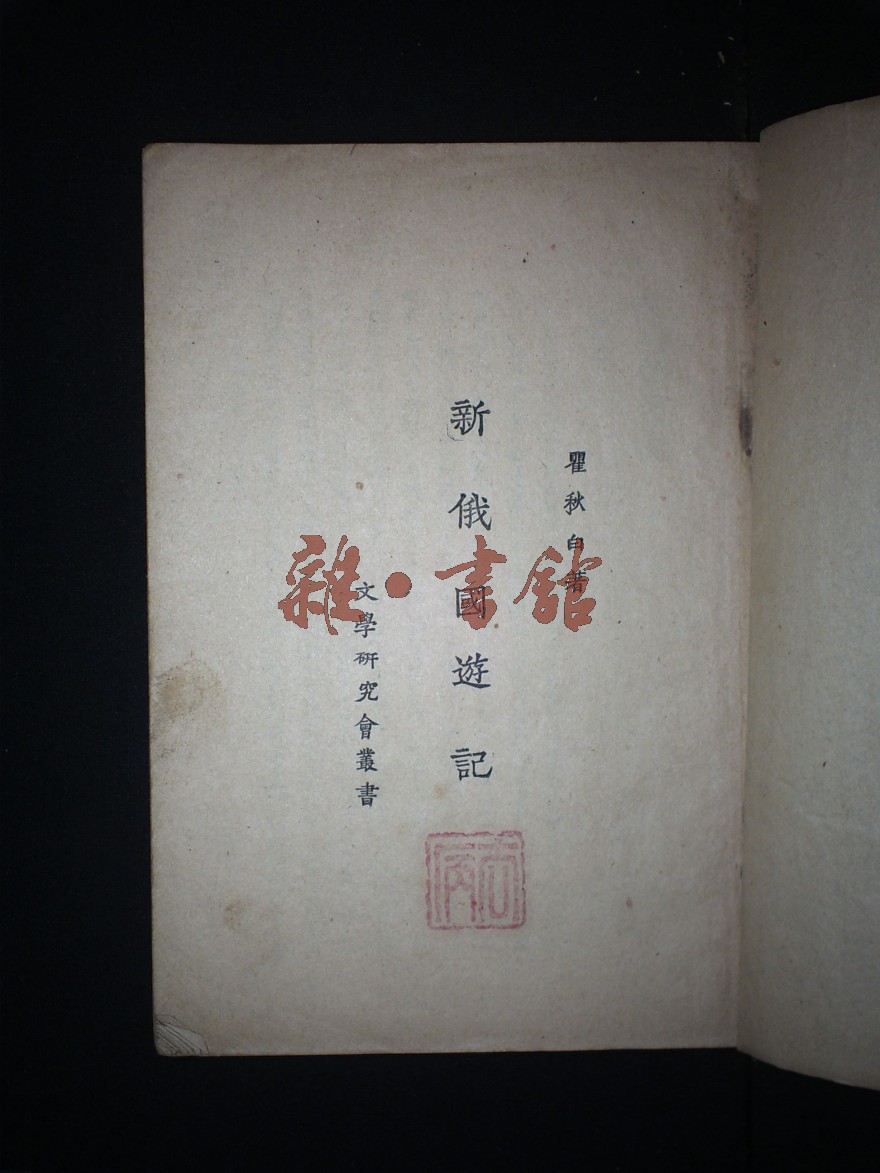 瞿秋白著
新俄國遊記
文學硏究會叢書
雜·書館